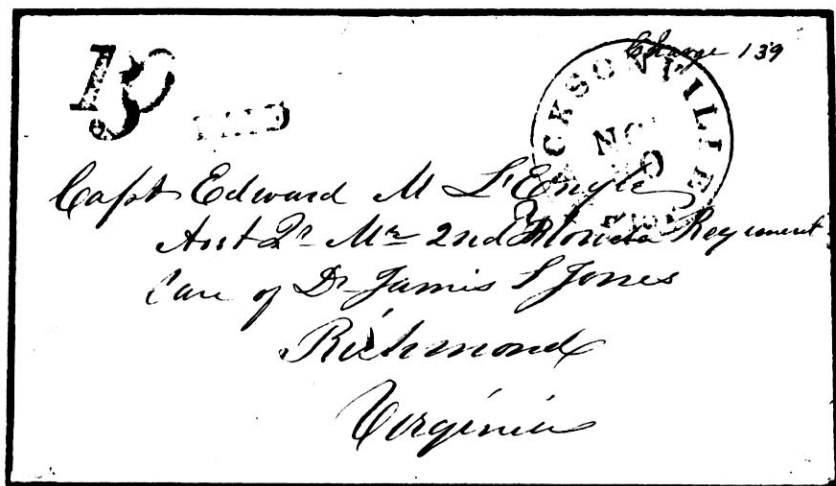 Charge 139
10
PAID
JACKSONVILLE
NO
Capt Edward M L'Engle
Asst Qr Mr 2nd Florida Regiment
Care of Dr James S Jones
Richmond
Virginia